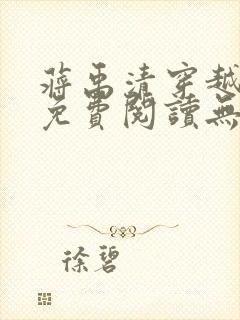 蔣禹清穿越
免費閱讀無
徐碧